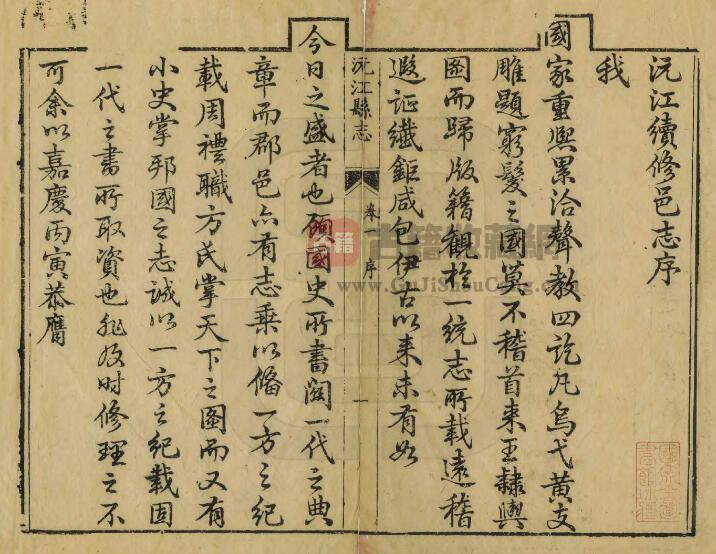 沅江續修邑志序
我
國家重熙累洽聲教四訖凡烏弋黃支
雕題窮髮之國莫不稽首来王隸輿
圖而歸版籍觀於一統志所載遠稽
遐証纖鉅咸包伊古以来未有如
沅江縣志
卷一 序
一
今日之盛者也顧國史所書閎一代之典
章而郡邑亦有志乘以備一方之紀
載周禮職方氏掌天下之圖而又有
小史掌邦國之志誠以一方之紀載固
一代之書所取資也非及时修理之不
可余以嘉慶丙寅恭膺
古籍收藏網
www.GuJiShouCang.com